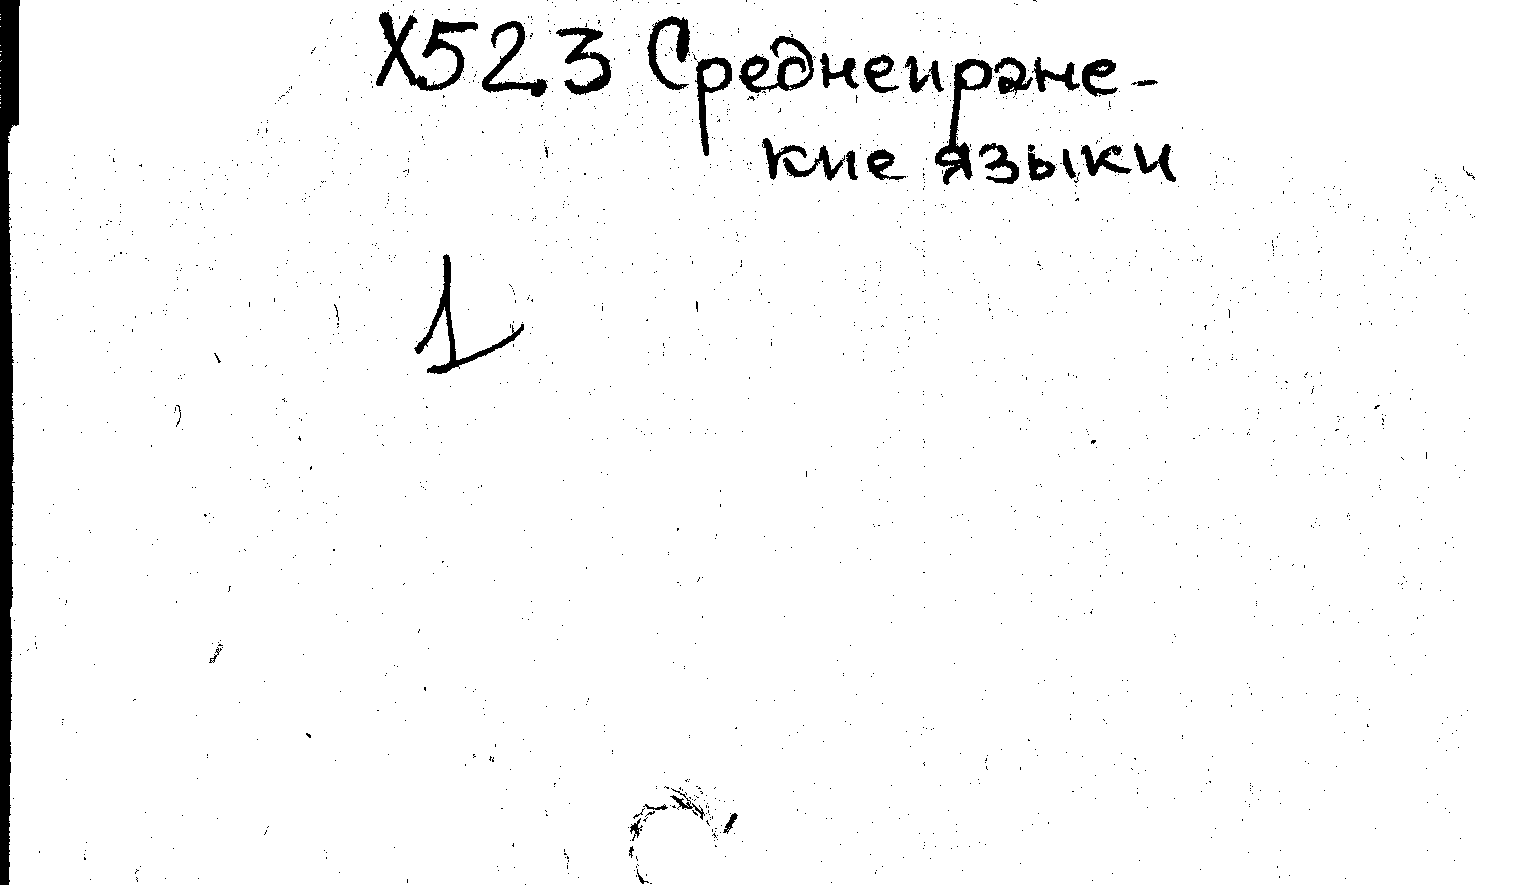 Х52.3 Среднеиранс-
кие языки
1